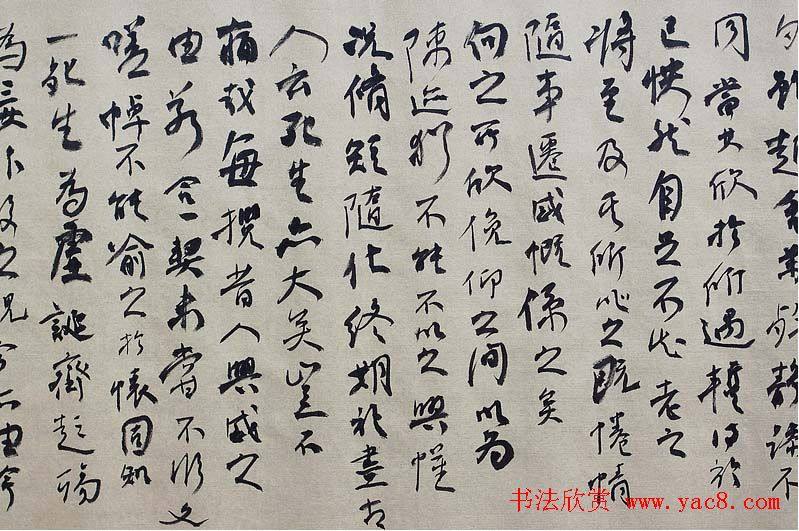 雖趣舍萬殊静躁不
同當其欣於所遇暫得於
己快然自足不知老之
將至及其所之既倦情
隨事遷感慨係之矣
向之所欣俛仰之間以為
陳迹猶不能不以之興懷
況脩短隨化終期於盡古
人云死生亦大矣豈不
痛哉每攬昔人興感之
由若合一契未嘗不臨文
嗟悼不能喻之於懷固知
一死生為虛誕齊彭殤
為妄作後之視今亦由今
书法欣赏 www.yac8.com